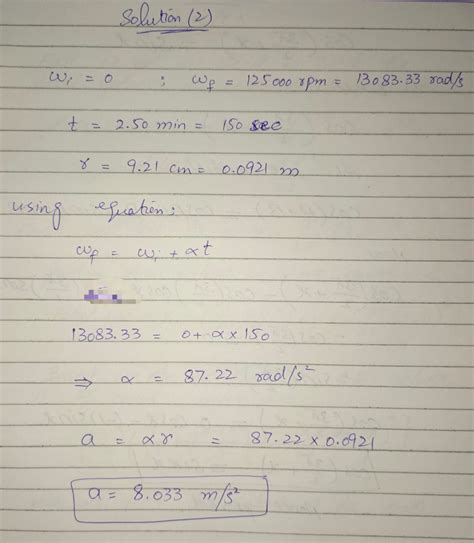 Solution (2)
ωi = 0 ; ωf = 125000 rpm = 13083.33 rad/s
t = 2.50 min = 150 sec
r = 9.21 cm = 0.0921 m
using equation:
ωf = ωi + αt
13083.33 = 0 + α × 150
⇒ α = 87.22 rad/s²
a = αr = 87.22 × 0.0921
a = 8.033 m/s²